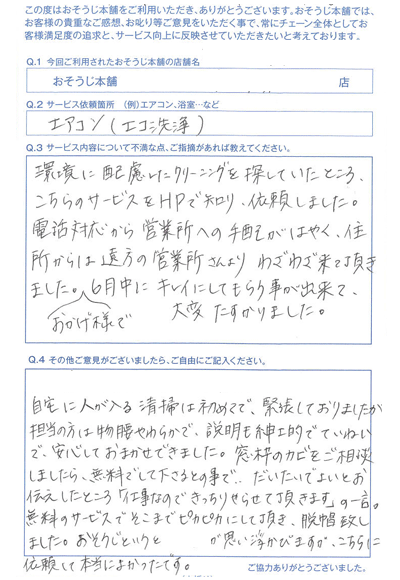 この度はおそうじ本舗をご利用いただき、ありがとうございます。おそうじ本舗では、
お客様の貴重なご感想、お叱り等ご意見をいただく事で、常にチェーン全体としてお
客様満足度の追求と、サービス向上に反映させていただきたいと考えております。
Q.1 今回ご利用されたおそうじ本舗の店舗名
おそうじ本舗 店
Q.2 サービス依頼箇所 (例)エアコン、浴室…など
エアコン(エコ洗浄)
Q.3 サービス内容について不満な点、ご指摘があれば教えてください。
環境に配慮したクリーニングを探していたところ、
こちらのサービスをHPで知り、依頼しました。
電話対応から営業所への手配がはやく、住
所からは遠方の営業所さんよりわざわざ来て頂き
ました。6月中にキレイにしてもらう事が出来て、
おかげ様で 大変たすかりました。
Q.4 その他ご意見がございましたら、ご自由にご記入ください。
自宅に人が入る清掃は初めてで、緊張しておりましたが
担当の方は物腰やわらかで、説明も紳士的でていねい
で、安心しておまかせできました。窓枠のカビをご相談
しましたら、無料でして下さるとの事で、だいたいでよいとお
伝えしたところ「仕事なのできっちりやらせて頂きます」の一言。
無料のサービスでそこまでピカピカにして頂き、脱帽致し
ました。おそうじというと が思い浮かびますが、こちらに
依頼して本当によかったです。
ご協力ありがとうございました。